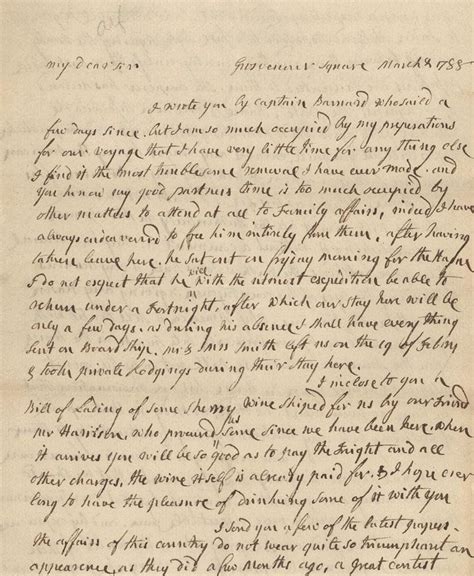 my dear sir Grosvenor Square March 8 1788
I wrote you by Captain Barnard who saild a
few days since. but I am so much occupied by my preperations
for our voyage that I have very little time for any thing else
I find it the most troublesome removal I have ever made. and
you know my good partners time is too much occupied by
other matters to attend at all to Family affairs, indeed I have
always endeavourd to free him intirely from them, after having
taken leave here. he sat out on fryday morning for the Hague
I do not expect that he will with the utmost expedition be able to
return under a Fortnight, after which our Stay here will be
only a few days. as during his absence I shall have every thing
sent on Board Ship. mr & mrs Smith left us on the 29 of Febry
& took private Lodgings during their Stay here.
I inclose to you a
Bill of Lading of some Sherry wine shiped for us by our Friend
mr Harrison, who procured us some since we have been here. when
it arrives you will be so good as to pay the fright and all
other charges, the wine itself is already paid for. & I hope ever
long to have the pleasure of drinking some of it with you
I send you a few of the latest papers.
the affairs of this country do not wear quite so triumphant an
appearence as they did a few months ago, a great contest